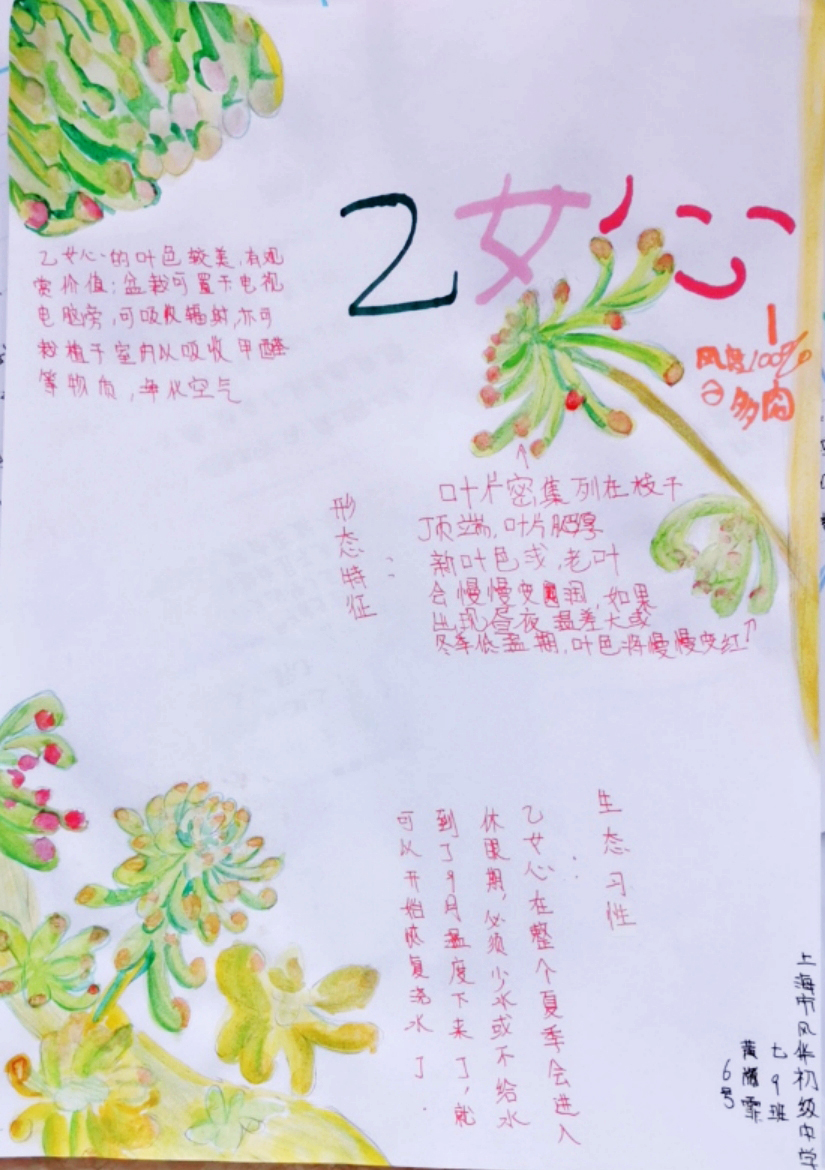 乙女心
风度100%
的多肉
乙女心的叶色较美,有观
赏价值;盆栽可置于电视
电脑旁,可吸收辐射,亦可
栽植于室内以吸收甲醛
等物质,净化空气
形态特征:
叶片密集列在枝干
顶端,叶片肥厚
新叶色浅,老叶
会慢慢变圆润,如果
出现昼夜温差大或
冬季低温期,叶色将慢慢变红
生态习性:
乙女心在整个夏季会进入
休眠期,必须少水或不给水
到了9月温度下来了,就
可以开始恢复浇水了.
上海市风华初级中学
七9班
黄霏
6号